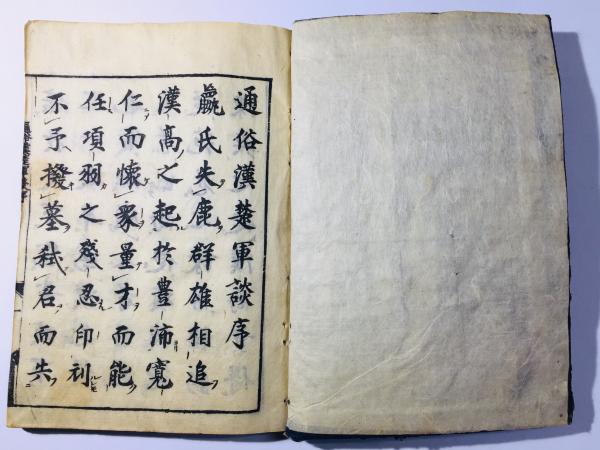 通俗漢楚軍談序
嬴氏失鹿群雄相追
漢高之起於豊沛寛
仁而懐衆量才而能
任項羽之殘忍印刓
不予撥墓弒君而失